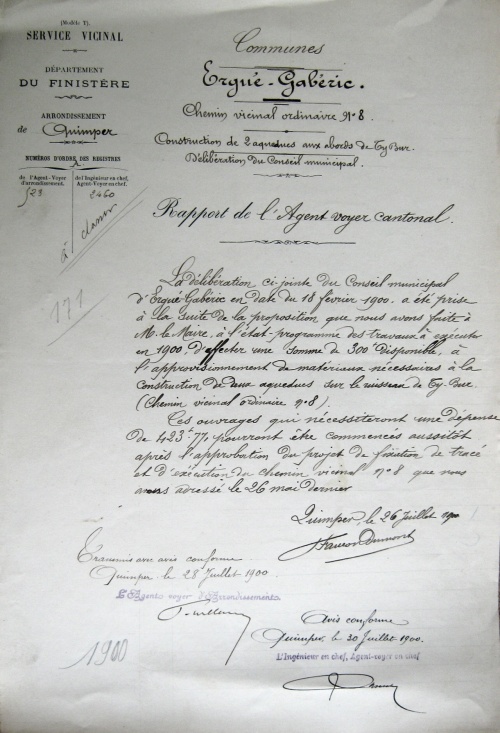 (Modèle T).
SERVICE VICINAL
DÉPARTEMENT
DU FINISTÈRE
ARRONDISSEMENT
de Quimper
NUMÉROS D'ORDRE DES REGISTRES
de l'Agent-Voyer d'arrondissement.
de l'Ingénieur en chef, Agent-Voyer en chef.
523
2460
à classer
171
Communes
Ergué-Gabéric.
Chemin vicinal ordinaire N° 8.
Construction de 2 aqueducs aux abords de Ty Bur.
Délibération du Conseil municipal.
Rapport de l'Agent voyer cantonal.
La délibération ci-jointe du Conseil municipal
d'Ergué-Gabéric en date du 18 février 1900. a été prise
à la suite de la proposition que nous avons faite à
M. le Maire, à l'état-programme des travaux à exécuter
en 1900, d'affecter une somme de 300f disponible, à
l'approvisionnement de matériaux nécessaires à la
construction de deux aqueducs sur le ruisseau de Ty-Bur.
(Chemin vicinal ordinaire n° 8).
Ces ouvrages qui nécessiteront une dépense
de 423f,77 pourront être commencés aussitôt
après l'approbation du projet de fixation de tracé
et d'exécution du chemin vicinal n° 8 que nous
avons adressé le 26 mai dernier
Quimper, le 26 Juillet 1900
Transmis avec avis conforme
Quimper le 28 Juillet 1900.
L'Agent voyer d'Arrondissement
Avis conforme
Quimper le 30 Juillet 1900.
L'Ingénieur en chef, Agent-voyer en chef
1900